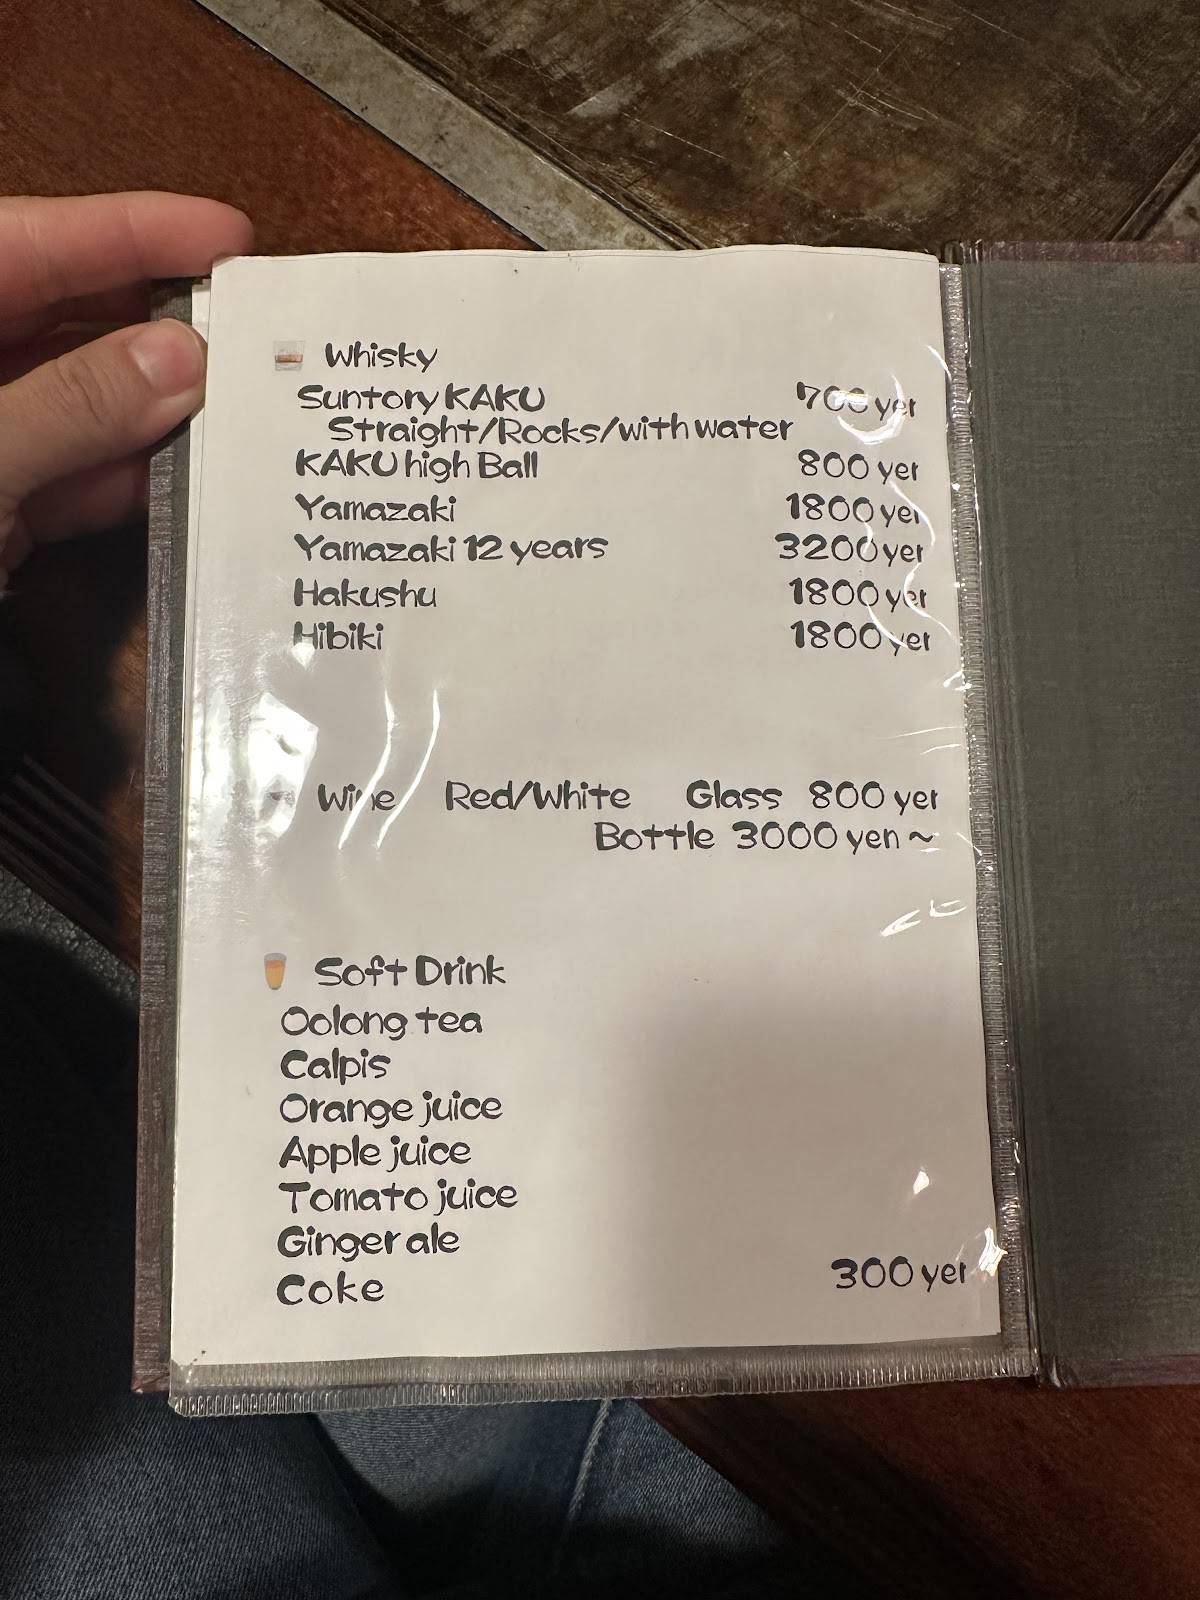 Whisky
Suntory KAKU 700 yen
Straight/Rocks/with water
KAKU high Ball 800 yen
Yamazaki 1800 yen
Yamazaki 12 years 3200 yen
Hakushu 1800 yen
Hibiki 1800 yen
Wine Red/White Glass 800 yen
Bottle 3000 yen ~
Soft Drink
Oolong tea
Calpis
Orange juice
Apple juice
Tomato juice
Ginger ale
Coke 300 yen